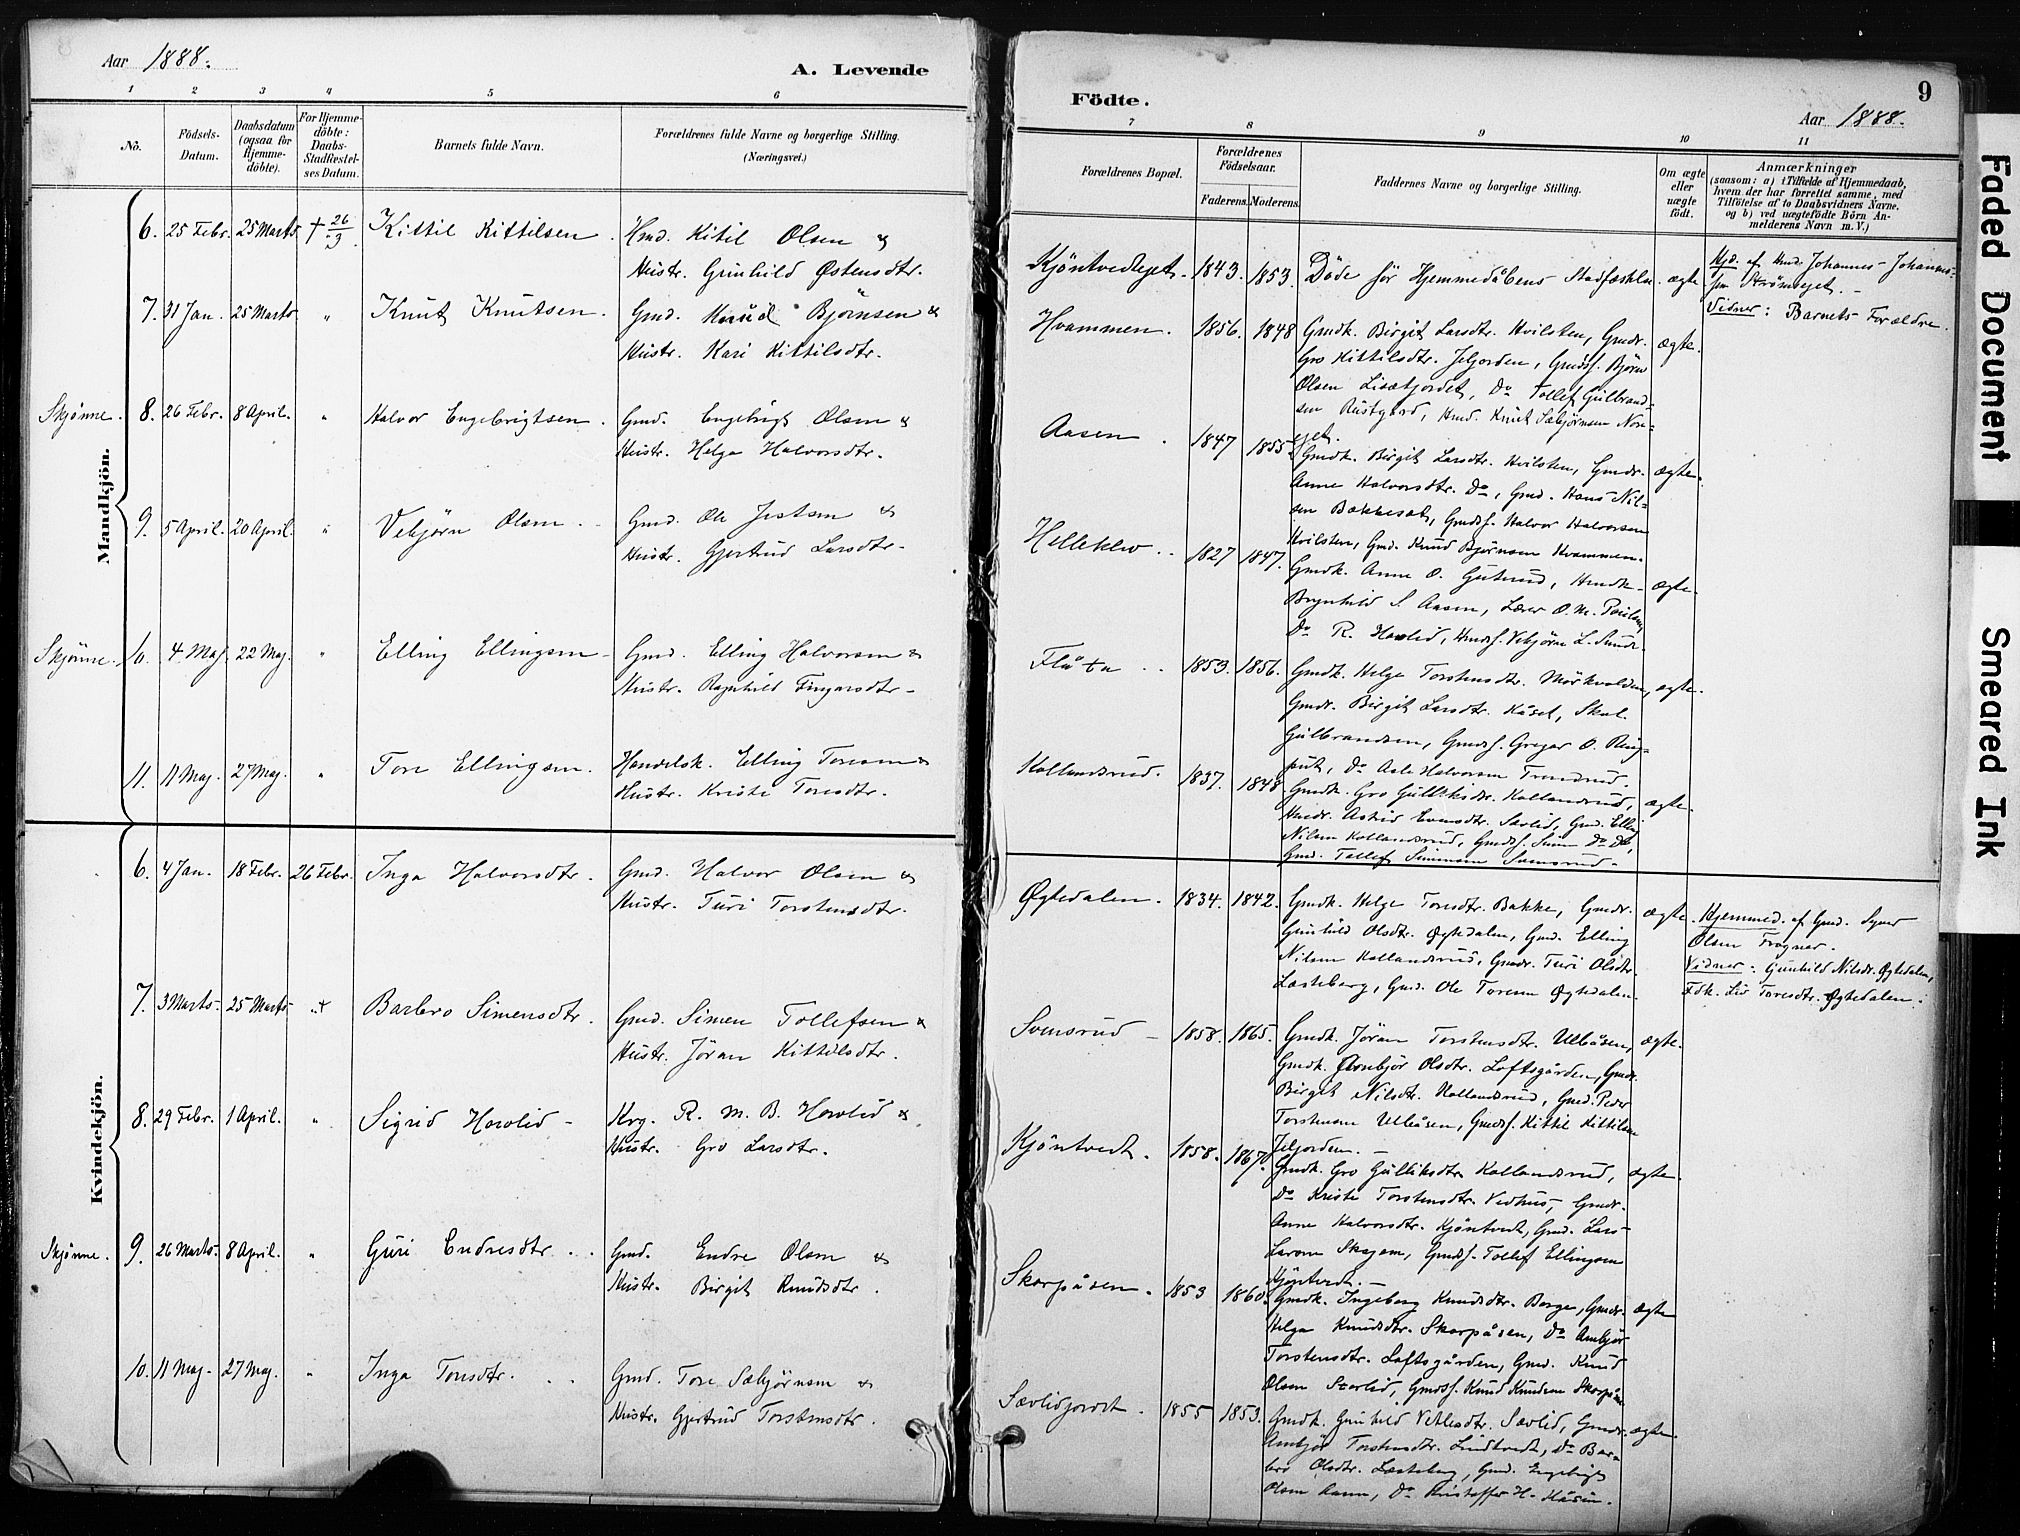 Aar 1888.
A. Levende
1 2 3 4 5 6
No.
Födsels-Datum.
Daabsdatum (ogsaa for Hjemme-döbte).
For Hjemme-döbte: Daabs-Stadfæstel-ses Datum.
Barnets fulde Navn.
Forældrenes fulde Navne og borgerlige Stilling.
(Næringsvei.)
Mandkjön.
6. 25 Febr. 25 Marts † 26/3 Kittil Kittilsen. Hmd. Kitil Olsen &
Hustr. Gunhild Østensdtr.
7. 31 Jan. 25 Marts " Knut Knutsen. Gmd. Knud Bjørnsen &
Hustr. Kari Kittilsdtr.
Skjønne. 8. 26 Febr. 8 April. " Halvor Engebrigtsen. Gmd. Engebrigt Olsen &
Hustr. Helga Halvorsdtr.
9. 5 April. 20 April. " Vebjørn Olsen. Gmd. Ole Jostsen &
Hustr. Gjertrud Larsdtr.
Skjønne. 10. 4 Maj. 22 Maj. " Elling Ellingsen Gmd. Elling Halvorsen &
Hustr. Ragnhild Fingarsdtr.
11. 11 Maj. 27 Maj. " Tore Ellingsen. Handelsk. Elling Toresen &
Hustr. Kristi Toresdtr.
Kvindekjön.
6. 4 Jan. 18 Febr. 26 Febr. Inga Halvorsdtr. Gmd. Halvor Olsen &
Hustr. Turi Torstensdtr.
7. 3 Marts 25 Marts Barbro Simensdtr. Gmd. Simen Tollefsen &
Hustr. Jöran Kittilsdtr.
8. 29 Febr. 1 April. " Sigrid Hovlid Krg. R. M. B. Hovlid &
Hustr. Gro Larsdtr.
Skjønne. 9. 26 Marts 8 April. " Guri Endresdtr. Gmd. Endre Olsen &
Hustr. Birgit Knudsdtr.
10. 11 Maj 27 Maj. " Inga Toresdtr. Gmd. Tore Sæbjörnsen &
Hustr. Gjertrud Torstensdtr.
Födte.
9
Aar 1888.
7 8 9 10 11
Forældrenes Bopæl.
Forældrenes Födselsaar.
Faderens. Moderens.
Faddernes Navne og borgerlige Stilling.
Om ægte eller uægte födt.
Anmærkninger
(saasom: a) i Tilfælde af Hjemmedaab, hvem der har forrettet samme, med Tilföielse af to Daabsvidners Navne. og b) ved uægtefödte Börn An-melderens Navn m.V.)
Kjöntvedteget. 1843. 1853. Döde för Hjemmedåbens Stadfæstelse. ægte. Hjd. af Hmd. Johannes Johannes-
sen Strömeget.
Vidner: Barnets Forældre.
Hvammen. 1856. 1848 Gmdk. Birgit Larsdtr. Hvilsten, Gmdr. ægte.
Gro Kittilsdtr. Jeljorden, Gmdsf. Björn
Olsen Lisetjordet, Do Tollef Gulbrand-
sen Rustgård, Hmd. Knut Sæbjørnsen Nore-
eget.
Aasen. 1847 1855 Gmdk. Birgit Larsdtr. Hvilsten, Gmdr. ægte.
Anne Halvorsdtr. Do, Gmd. Hans Nil-
sen Bakkeset, Gmdsf. Halvor Halvorsen
Hvilsten, Gmd. Knud Bjørnsen Kvammen.
Helleklev. 1827 1847. Gmdk. Anne O. Guterud, Hmdk. ægte.
Brynhild S. Aasen, Lærer O. M. Poulsen,
Do R. Hovlid, Hmdsf. Vebjörn L. Sunde.
Flåta 1853. 1856. Gmdk. Helge Torstensdtr. Mörkvolden, ægte.
Gmdr. Birgit Larsdtr. Kåset, Skol.
Gulbrandsen, Gmdsf. Gregar O. Ring-
put, Do Asle Halvorsen Trondrud.
Kollandsrud. 1837. 1848 Gmdk. Gro Gulliksdtr. Kollandsrud, ægte.
Hmdr. Astrid Evensdtr. Sævlid, Gmd. Elling
Nilsen Kollandsrud, Gmdsf. Simen Do Do,
Gmd. Tollef Simensen Svensrud.
Øgtedalen. 1834. 1842. Gmdk. Helge Toresdtr. Bakke, Gmdr. ægte. Hjemmed. af Gmd. Syver
Gunhild Olsdtr. Øgtedalen, Gmd. Elling Olsen Frogner.
Nilsen Kollandsrud, Gmdr. Turi Olsdtr. Vidner: Gunhild Nilsdr. Øgtedalen,
Lasteberg, Gmd. Ole Toresen Øgtedalen. Fdk. Liv Toresdtr. Øgtedalen.
Svensrud 1858. 1865. Gmdk. Jöran Torstensdtr. Ulleåsen, ægte.
Gmdk. Ambjör Olsdtr. Loftsgården, Gmdr.
Birgit Nilsdtr. Kollandsrud, Gmd. Peder
Torstensen Ulleåsen, Gmdsf. Kittil Kittilsen
Jeljorden.
Kjöntvedt. 1858. 1867. Gmdk. Gro Gulliksdtr. Kollandsrud, ægte.
Do Kristi Torstensdtr. Vedhus, Gmdr.
Anne Halvorsdtr. Kjöntvedt, Gmd. Lars
Larsen Skajem, Gmdsf. Tollef Ellingsen
Kjöntvedt.
Skarpåsen. 1853 1860. Gmdk. Ingeborg Knudsdtr. Borge, Gmdr. ægte
Helga Knudsdtr. Skarpåsen, Do Ambjör
Torstensdtr. Loftsgården, Gmd. Knud
Olsen Sævlid, Gmdsf. Knud Knudsen Skarpåsen
Sævlidjordet. 1855 1853. Gmdk. Gunhild Vetlesdtr. Sævlid, Gmdr. ægte.
Ambjör Torstensdtr. Lindtvedt, Do Bar-
bro Olsdtr. Lasteberg, Gmd. Engebrigt
Olsen Aasen, Do Kristoffer H. Kåsen.
Faded Document
Smeared Ink